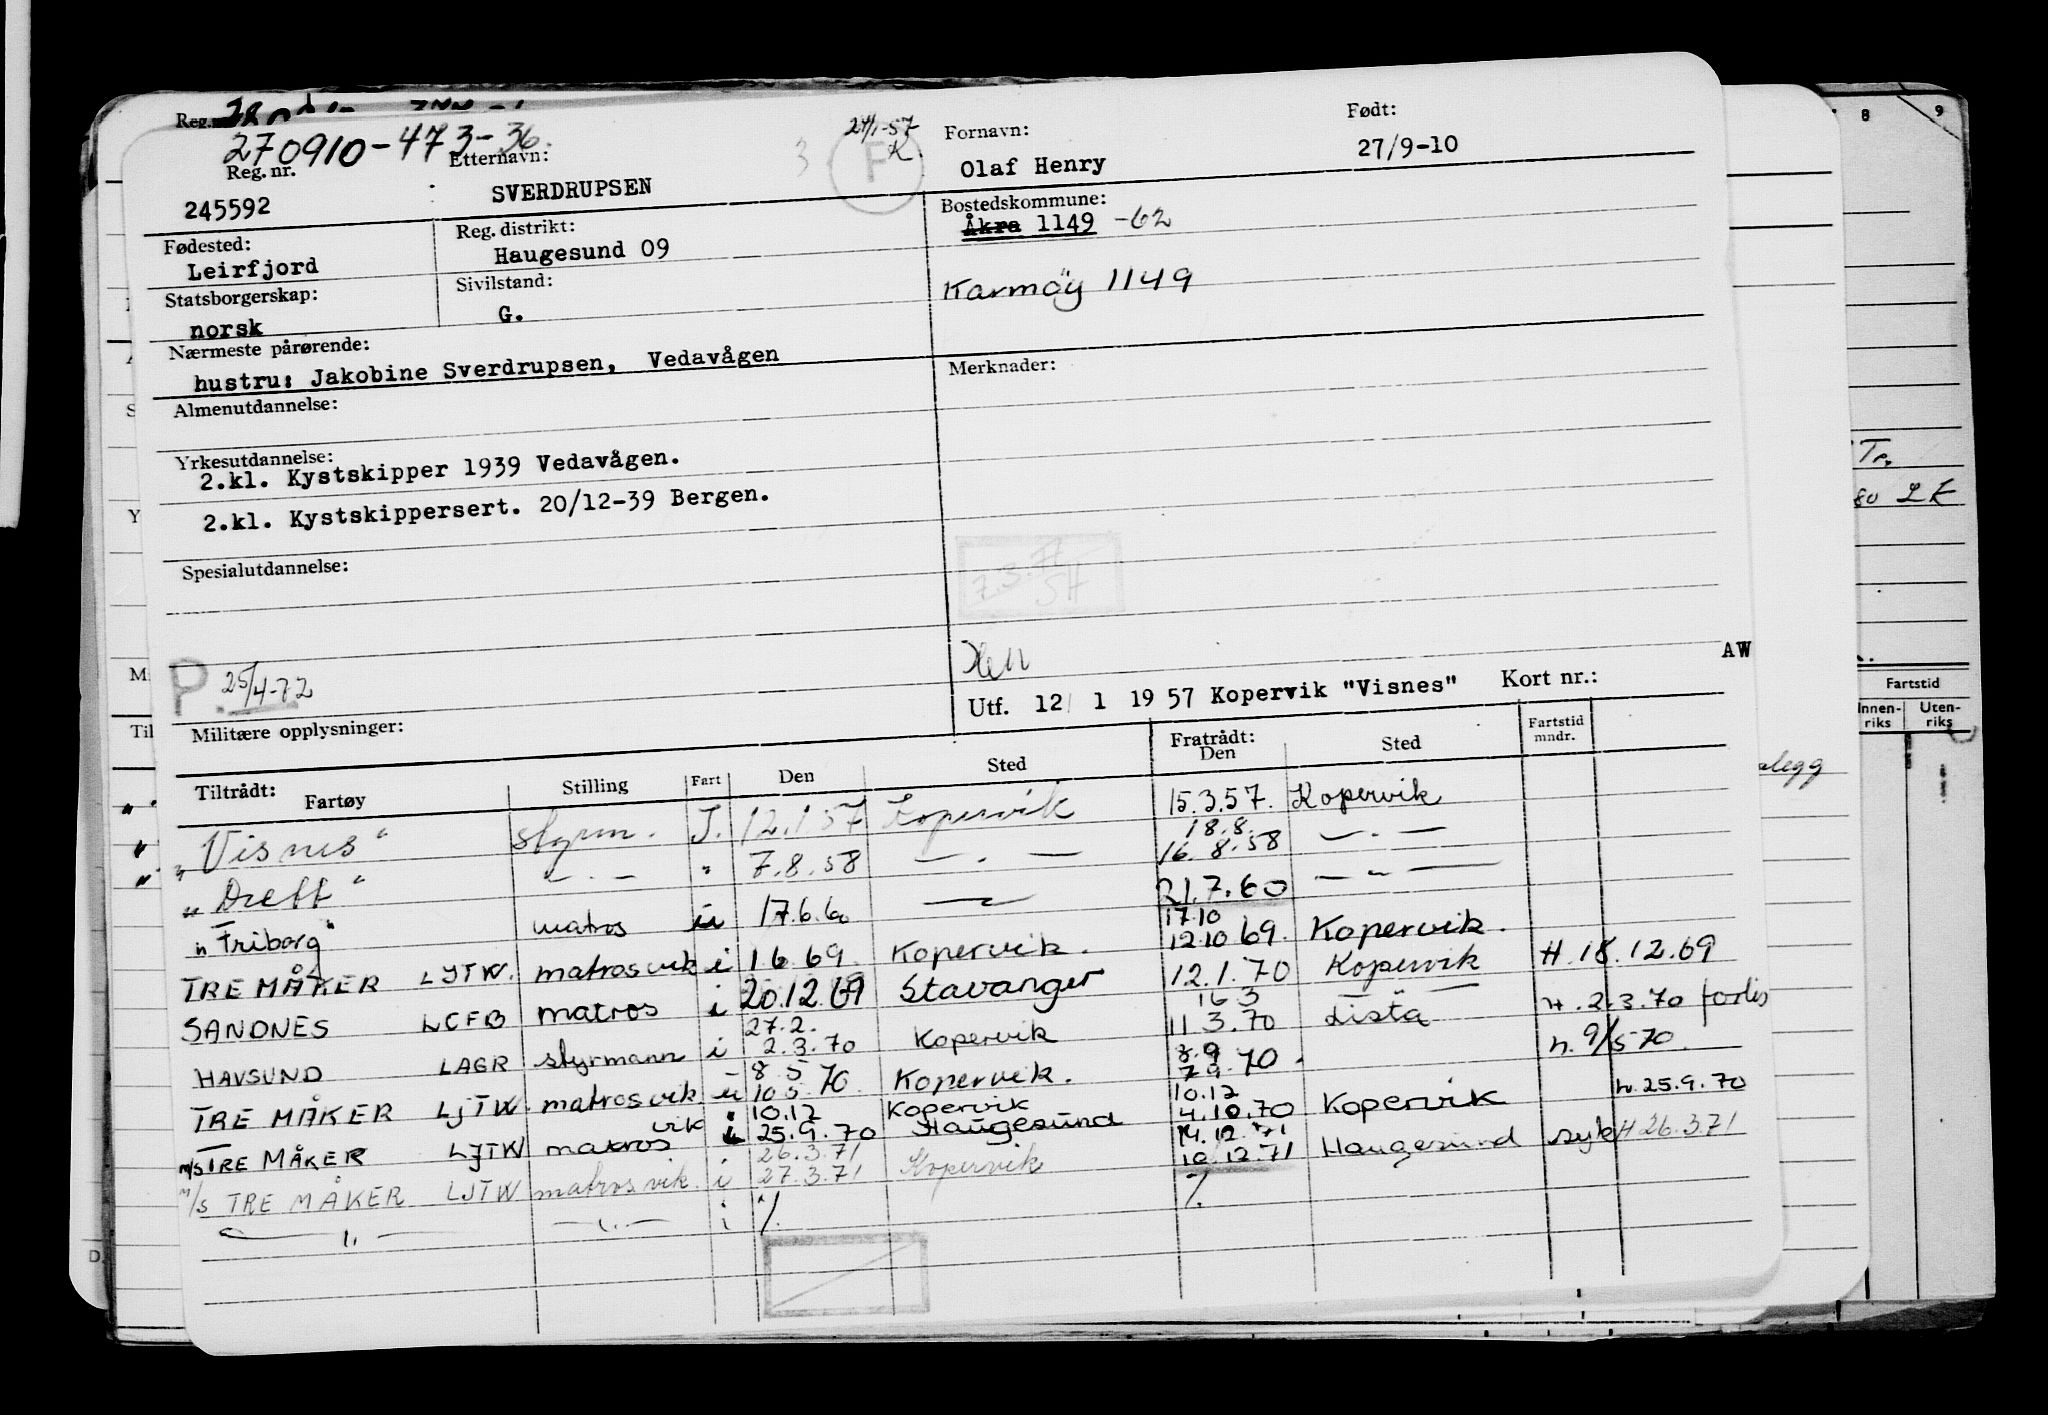 Reg.
270910-473-36.
Reg. nr. Etternavn: 24/1-57 Fornavn: Født:
245592 SVERDRUPSEN F Olaf Henry 27/9-10
Fødested: Reg. distrikt: Bostedskommune:
Leirfjord Haugesund 09 Åkra 1149 -62
Statsborgerskap: Sivilstand:
norsk G. Karmøy 1149
Nærmeste pårørende:
hustru: Jakobine Sverdrupsen, Vedavågen Merknader:
Almenutdannelse:
Yrkesutdannelse:
2.kl. Kystskipper 1939 Vedavågen.
2.kl. Kystskippersert. 20/12-39 Bergen.
Spesialutdannelse:
AW
P. 25/4-72
Utf. 12/ 1 19 57 Kopervik "Visnes" Kort nr.:
Militære opplysninger:
Tiltrådt: Fartøy Stilling Fart Den Sted Fratrådt: Den Sted Fartstid mndr.
"Visnes" styrm. I. 12.1.57 Kopervik 15.3.57. Kopervik
"Dreff" — " — " 7.8.58 — " — 18.8. 16.8.58 — " —
"Friborg" matros iu 17.6.60 — " — 21.7.60 — " —
TRE MÅKER LJTW. matros vik i 1.6.69. Kopervik. 17.10 12.10 69. Kopervik.
SANDNES LCFB matros i 20.12.69 Stavanger 12.1.70 Kopervik H. 18.12.69
HAVSUND LAGR styrmann i 27.2. 2.3.70 Kopervik 16 3 11 3.70 Lista H. 2.3.70
TRE MÅKER LJTW. matros vik. iu 8 5 10 5 70. Kopervik. 8.9 7 9 70. h. 9/5 70.
m/s TRE MÅKER LJTW matros vik i 10.12 25.9.70 Kopervik Haugesund 10.12 4.10.70 Kopervik h. 25.9.70
m/s TRE MÅKER LJTW matros vik. i 26.3.71 27.3.71 Kopervik 14.12.71 10.12.71 Haugesund syk H 26.3.71
— " — — " — i /. /.
8 9
Tr.
80 LK
Fartstid
Innen-riks Uten-riks